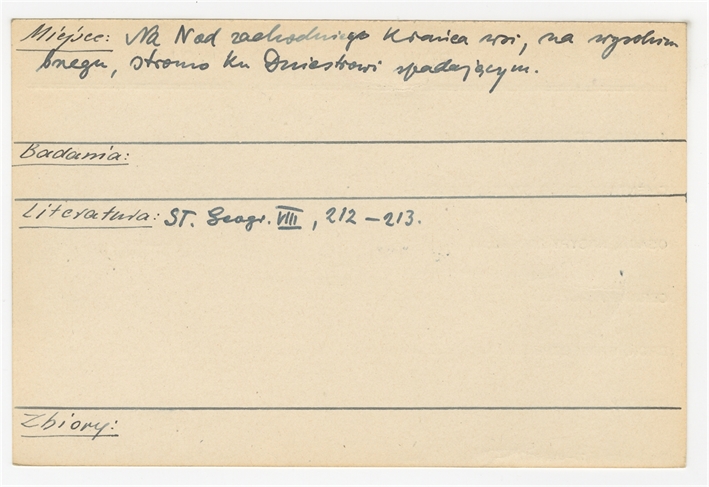 Miejsce: Na N od zachodniego Krańca wsi, na wysokim
brzegu, stromo ku Dniestrowi spadającym.
Badania:
Literatura: ST. Geogr. VIII, 212-213.
Zbiory: